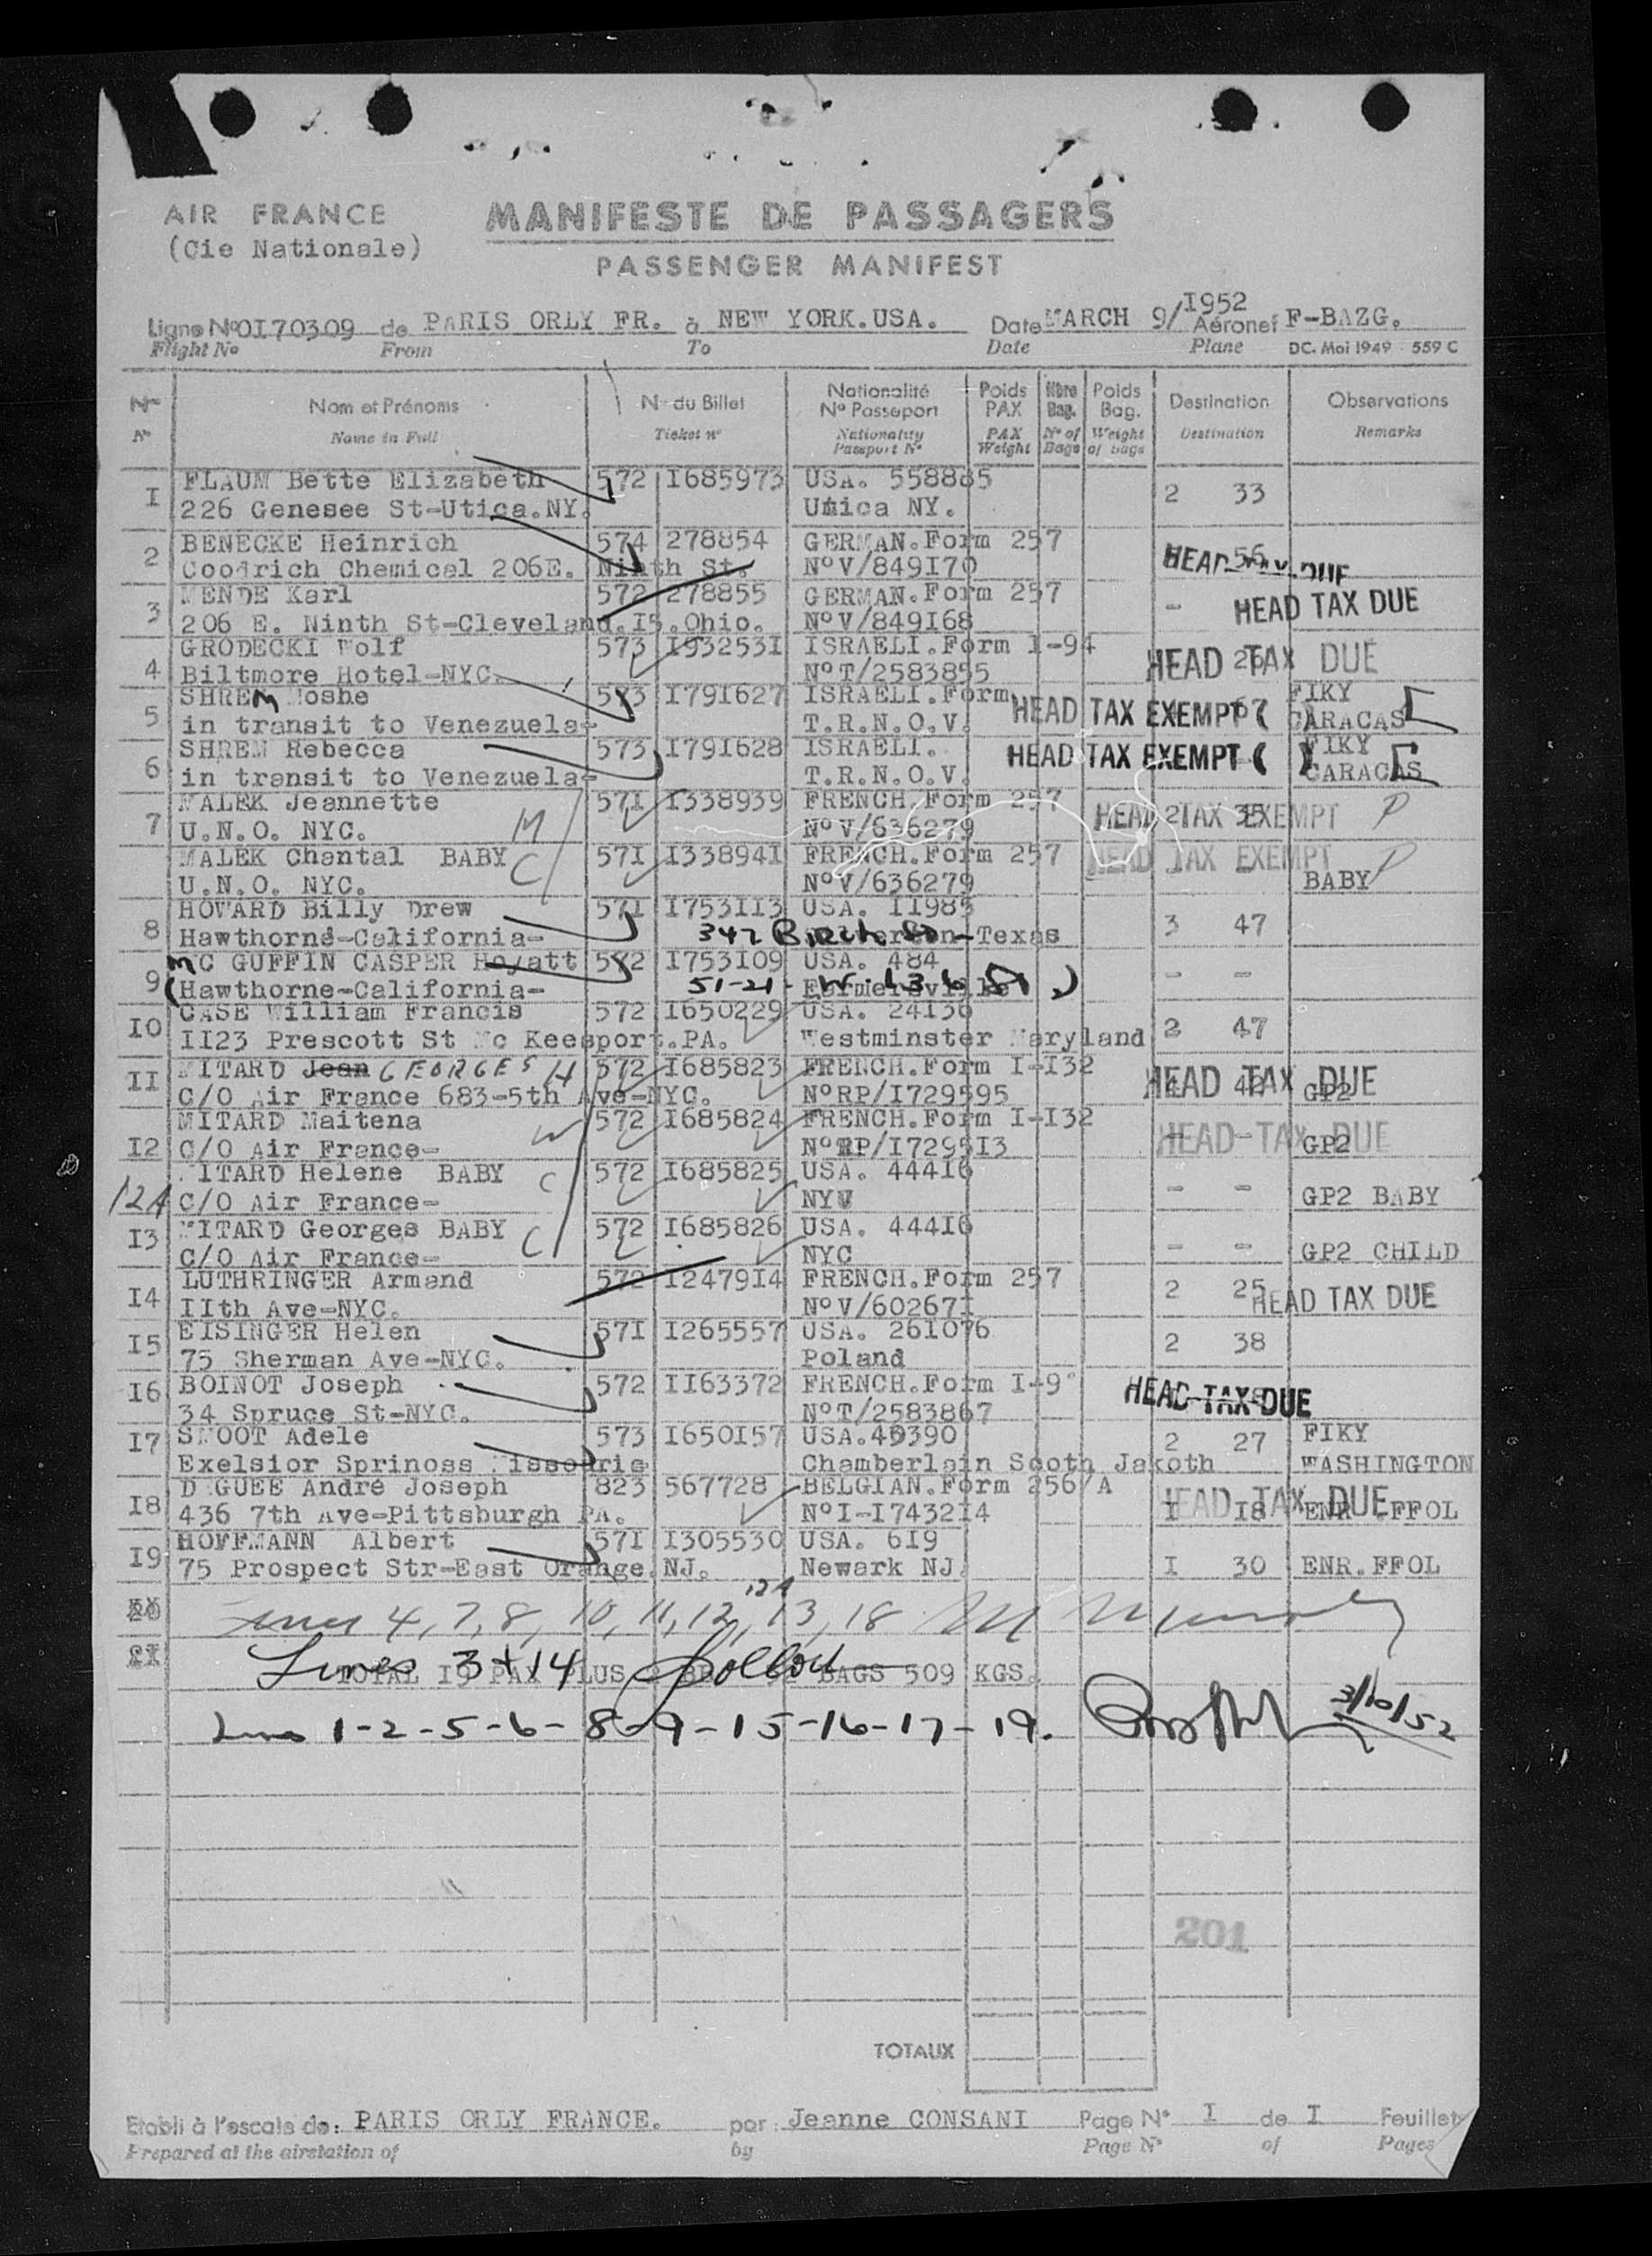 AIR FRANCE
(Cie Nationale)
MANIFESTE DE PASSAGERS
PASSENGER MANIFEST
Ligne No 0I70309 de PARIS ORLY FR. à NEW YORK.USA. Date MARCH 9/I952 Aéronef F-BAZG.
Flight No From To Date Plane DC. Mai 1949 559 C
No Nom et Prénoms No du Billet Nationalité No Passeport Poids PAX Nbre Bag. Poids Bag. Destination Observations
No Name in Full Ticket no Nationality Passport No PAX Weight No of Bags Weight of bags Destination Remarks
I FLAUM Bette Elizabeth 572 I685973 USA. 558885 2 33
226 Genesee St-Utica.NY. Utica NY.
2 BENECKE Heinrich 574 278854 GERMAN.Form 257 56 HEAD TAX DUE
Goodrich Chemical 206E. Ninth St. NoV/849I70
3 MENDE Karl 572 278855 GERMAN.Form 257 - HEAD TAX DUE
206 E. Ninth St-Cleveland.I5.Ohio. NoV/849I68
4 GRODECKI Wolf 573 I93253I ISRAELI.Form I-94 HEAD TAX DUE
Biltmore Hotel-NYC. NoT/2583855
5 SHREM Moshe 573 I791627 ISRAELI.Form HEAD TAX EXEMPT ( ) FIKY
in transit to Venezuela- T.R.N.O.V. CARACAS
6 SHREM Rebecca 573 I791628 ISRAELI. HEAD TAX EXEMPT ( ) FIKY
in transit to Venezuela- T.R.N.O.V. CARACAS
7 MALEK Jeannette 57I I338939 FRENCH.Form 257 2 35 HEAD TAX EXEMPT P
U.N.O. NYC. M NoV/636279
MALEK Chantal BABY 57I I33894I FRENCH.Form 257 HEAD TAX EXEMPT P
U.N.O. NYC. C NoV/636279 BABY
8 HOWARD Billy Drew 57I I753II3 USA. II983 3 47
Hawthorne-California- 347 Texas
9 MC GUFFIN CASPER Hoyatt 572 I753I09 USA. 484 - -
(Hawthorne-California- 51-21-
I0 CASE William Francis 572 I650229 USA. 24I36 2 47
II23 Prescott St Mc Keesport.PA. Westminster Maryland
II MITARD Jean GEORGES H 572 I685823 FRENCH.Form I-I32 42 HEAD TAX DUE GP2
C/O Air France 683-5th Ave-NYC. NoRP/I729595
I2 MITARD Maitena W 572 I685824 FRENCH.Form I-I32 HEAD TAX DUE GP2
C/O Air France- NoRP/I7295I3
12A MITARD Helene BABY C 572 I685825 USA. 444I6 - - GP2 BABY
C/O Air France- NYC
I3 MITARD Georges BABY C 572 I685826 USA. 444I6 - - GP2 CHILD
C/O Air France- NYC
I4 LUTHRINGER Armand 572 I2479I4 FRENCH.Form 257 2 25 HEAD TAX DUE
IIth Ave-NYC. NoV/60267I
I5 EISINGER Helen 57I I265557 USA. 261076 2 38
75 Sherman Ave-NYC. Poland
I6 BOINOT Joseph 572 II63372 FRENCH.Form I-9 HEAD TAX DUE
34 Spruce St-NYC. NoT/2583867
I7 SMOOT Adele 573 I650I57 USA. 2 27 FIKY
Exelsior Sprinoss Missouris Chamberlain Sooth Jakoth WASHINGTON
I8 DEGUEE André Joseph 823 567728 BELGIAN.Form 256/A I I8 HEAD TAX DUE ENR.FFOL
436 7th Ave-Pittsburgh PA. NoI-I7432I4
I9 HOFFMANN Albert 57I I305530 USA. 6I9 I 30 ENR.FFOL
75 Prospect Str-East Orange.NJ. Newark NJ.
20 Lines 4, 7, 8, 10, 11, 12, 12A, 13, 18
Lines 3+14
TOTAL I9 PAX PLUS BAGS 509 KGS.
Lines 1-2-5-6-8-9-15-16-17-19. 3/10/52
201
TOTAUX
Etabli à l'escale de: PARIS ORLY FRANCE. par Jeanne CONSANI Page No I de I Feuillet
Prepared at the airstation of by Page No of Pages